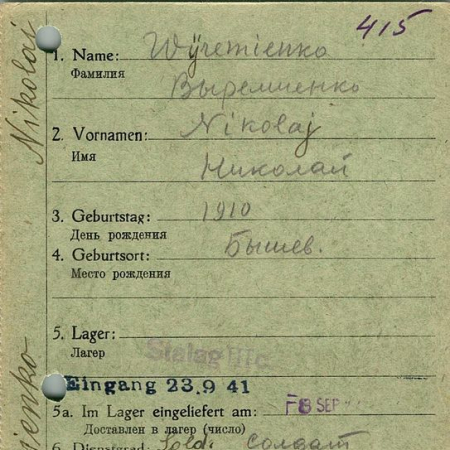 415
1. Name: Wyremienko
Фамилия
Выремиенко
2. Vornamen: Nikolaj
Имя
Николай
3. Geburtstag: 1910
День рождения
4. Geburtsort: Бышев.
Место рождения
5. Lager:
Лагер
Stalag
Eingang 23.9 41
5a. Im Lager eingeliefert am: F8 SEP
Доставлен в лагер (число)
6. Dienstgrad: Sold: солдат
Nikolaj
ienko